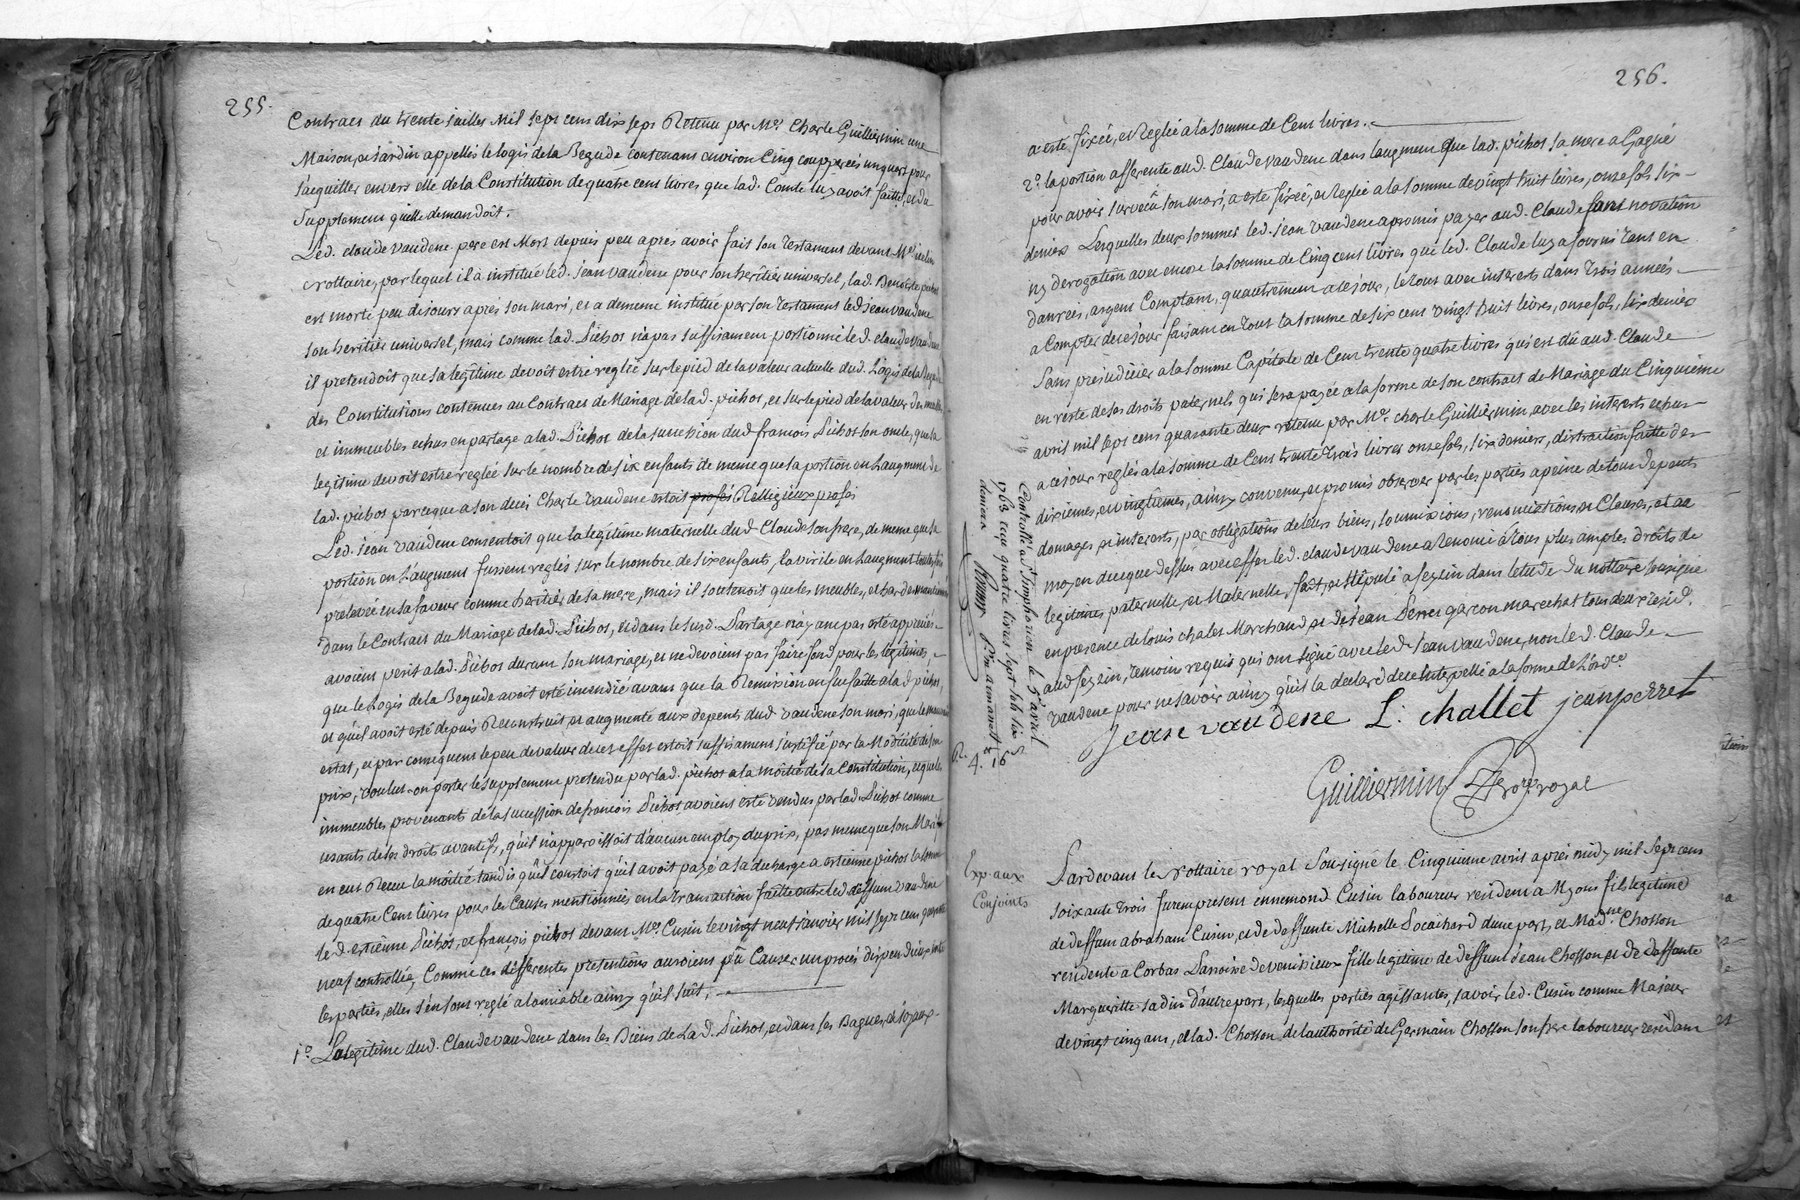 255.
Contract du trente juillet mil sept cens dix sept Retenu par Me. Charle Guilliermin une
Maison, et jardin appellés le logis de la Begude contenans environ Cinq coupperées un quart pour
s'acquitter envers elle de la Constitution de quatre cent livres que lad. Comte luy avoit faitte, et du
Supplement qu'elle demandoit.
Led. claude vaudene pere est Mort depuis peu aprés avoir fait son testament devant Me.
nottaire, par lequel il a institué led. jean vaudene pour son heritier universel, lad. Benoiste pichot
est morte peu de jours aprés son mari, et a de meme institué par son testament led. jean vaudene
son heritier universel, mais comme lad. Pichot n'a pas suffisament portionné led. claude vaudene
il pretendoit que sa legitime devoit estre reglée sur le pied de la valeur actuelle dud. Logis de la Begude
des Constitutions contenues au Contract de Mariage de lad. pichot, et sur le pied de la valeur des meubles
et immeubles echus en partage a lad. Pichot de la succession dud. françois Pichot son oncle, que la
legitime devoit estre reglée sur le nombre de six enfants de meme que sa portion en Laugment de
lad. pichot parce que a son deces Charle vaudene estoit profés Relligieux profés
Led. jean vaudene consentoit que la legitime maternelle dud. Claude son frere, de meme que sa
portion en L'augment fussent reglés sur le nombre de six enfants, la virile en Laugment toutefois
prelevée en sa faveur comme heritier de sa mere, mais il soutenoit que les meubles, et hardes mentionnés
dans le Contract du Mariage de lad. Pichot, et dans le susd. Partage n'ayant pas esté appreciés
avoient perit a lad. Pichot durant son mariage, et ne devoient pas faire fond pour les legitimes,
que le Logis de la Begude avoit esté incendié avant que la Remission en fut faitte a lad. pichot,
et qu'il avoit esté depuis Reconstruit, et augmenté aux depents dud. vaudene son mari, que le mauvais
estat, et par consequent le peu de valeur de cet effet estoit suffisament justifié par la Modicité de son
prix, voulut-on porter le supplement pretendu par lad. pichot a la moitié de sa Constitution, et que les
immeubles provenants de la succession de françois Pichot avoient esté vendus par lad. Pichot comme
usants de ses droits avantifs, qu'il n'apparoissoit d'aucun employ du prix, pas meme que son Mari
en eut Receu la moitié tandis qu'il constoit qu'il avoit payé a sa decharge a estienne pichot la somme
de quatre Cent livres pour les Causes mentionnées en la transaction faitte entre led. deffunt vaudene
led. estienne Pichot, et françois pichot devant Me. Cusin le vingt neuf janvier mil sept cent quarante
neuf controllée, Comme ces differentes pretentions auroient pû Causer un procés dispendieux entre
les parties, elles s'en sont reglé a l'amiable ainsy qu'il suit,
1°. La legitime dud. Claude vaudene dans les Biens de Lad. Pichot, et dans ses Bagues, et Joyaux
256.
a esté fixée, et Reglée a la somme de Cent livres.
2°. la portion afferente aud. Claude vaudene dans laugment que lad. pichot sa mere a Gagné
pour avoir survecu son mari, a esté fixée, et reglée a la somme de vingt huit livres, onze sols six
deniers Lesquelles deux sommes led. jean vaudene a promis payer aud. Claude sans novation
ny derogation avec encore la somme de Cinq cent livres que led. Claude luy a fourni tant en
danrées, argent Comptant, qu'autrement a ce jour, le tout avec interests dans trois années
a Compter de ce jour faisant en tout la somme de six cent vingt huit livres, onze sols, six deniers
Sans prejudicier a la somme Capitale de Cent trente quatre livres qui est dû aud. Claude
en reste de ses droits paternels qui sera payée a la forme de son contract de Mariage du Cinquieme
avril mil sept cens quarante deux retenu par Me. charle Guilliermin, avec les interests echus
a ce jour reglés a la somme de Cent trente trois livres onze sols, six deniers, distraction faitte des
dixiemes, et vingtiemes, ainsy convenu, et promis observer par les parties a peine de tous depents
domages et interests, par obligations de leurs biens, soumixions, renonciations, et Clauses, et au
moyen de ce que dessus avec effet led. claude vaudene a renoncé a tous plus amples droits de
legitimes paternelle, et Maternelle, fait, et stipulé a seyzin dans letude du nottaire soussigné
en presence de louis chalet Marchand, et de jean Perret garcon marechal tous deux resid.
aud. Seyzin, temoin requis qui ont signé avec led. jean vaudene, non led. Claude
vaudene pour ne savoir ainsy qu'il la declaré de ce Interpellé a la forme de L'ordce.
jean vaudene L: challet jean perret
Guilliermin Nore. royal
Controllé a St. simphorien le 5e. avril
1763 reçu quatre livres sept sols six
deniers
4 16
Exp. aux
Conjoints
Pardevant le Nottaire royal Soussigné le Cinquieme avril aprés midy mil sept cens
soixante trois furent present ennemond Cusin laboureur resident a Myons fils legitime
de deffunt abraham Cusin, et de deffunte Michelle Pocachard d'une part, et Madne. Chosson
residente a Corbas Parroisse de venissieux fille legitime de deffunt jean Chosson, et de deffunte
Margueritte jadin d'autre part, lesquelles parties agissantes, savoir led. Cusin comme Majeur
de vingt cinq ans, et lad. Chosson de l'authorité de Germain Chosson son frere laboureur resident